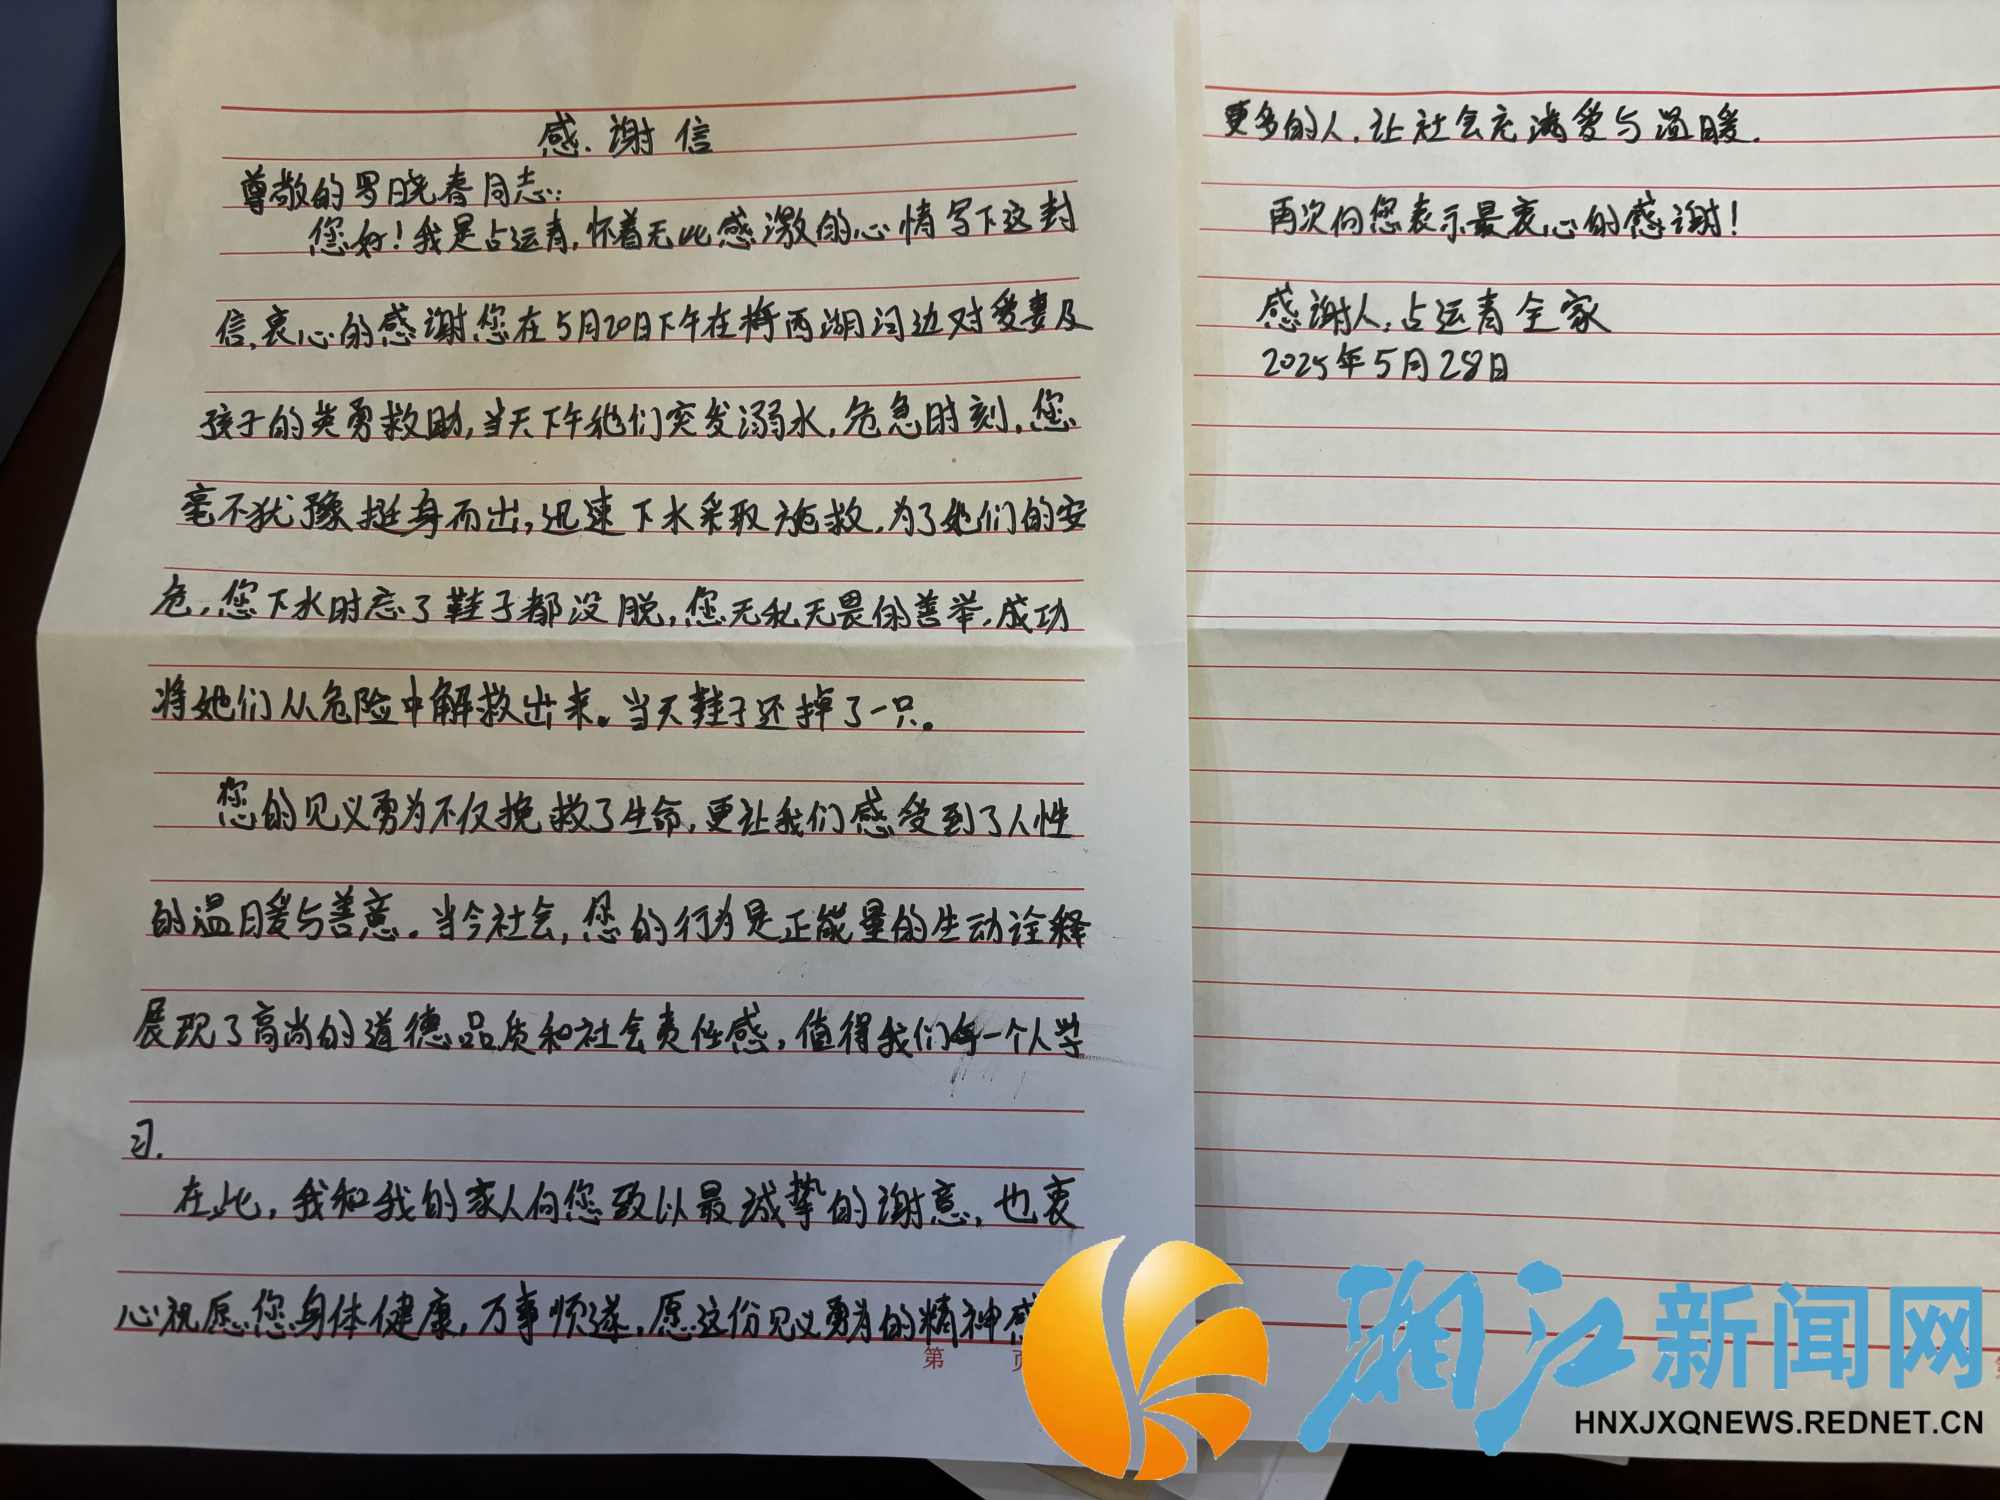 感.谢信
尊敬的罗晓春同志:
您好!我是占运青,怀着无比感激的心情写下这封
信,衷心的感谢您在5月20日下午在梅西湖河边对爱妻及
孩子的英勇救助,当天下午她们突发溺水,危急时刻,您
毫不犹豫挺身而出,迅速下水采取施救,为了她们的安
危,您下水时忘了鞋子都没脱,您无私无畏的善举,成功
将她们从危险中解救出来。当天鞋子还掉了一只。
您的见义勇为不仅挽救了生命,更让我们感受到了人性
的温暖与善意。当今社会,您的行为是正能量的生动诠释
展现了高尚的道德品质和社会责任感,值得我们每一个人学
习.
在此,我和我的家人向您致以最诚挚的谢意,也衷
心祝愿您身体健康,万事顺遂,愿这份见义勇为的精神感
第 页
更多的人,让社会充满爱与温暖.
再次向您表示最衷心的感谢!
感谢人:占运青全家
2025年5月28日
湘江新闻网
HNXJXQNEWS.REDNET.CN